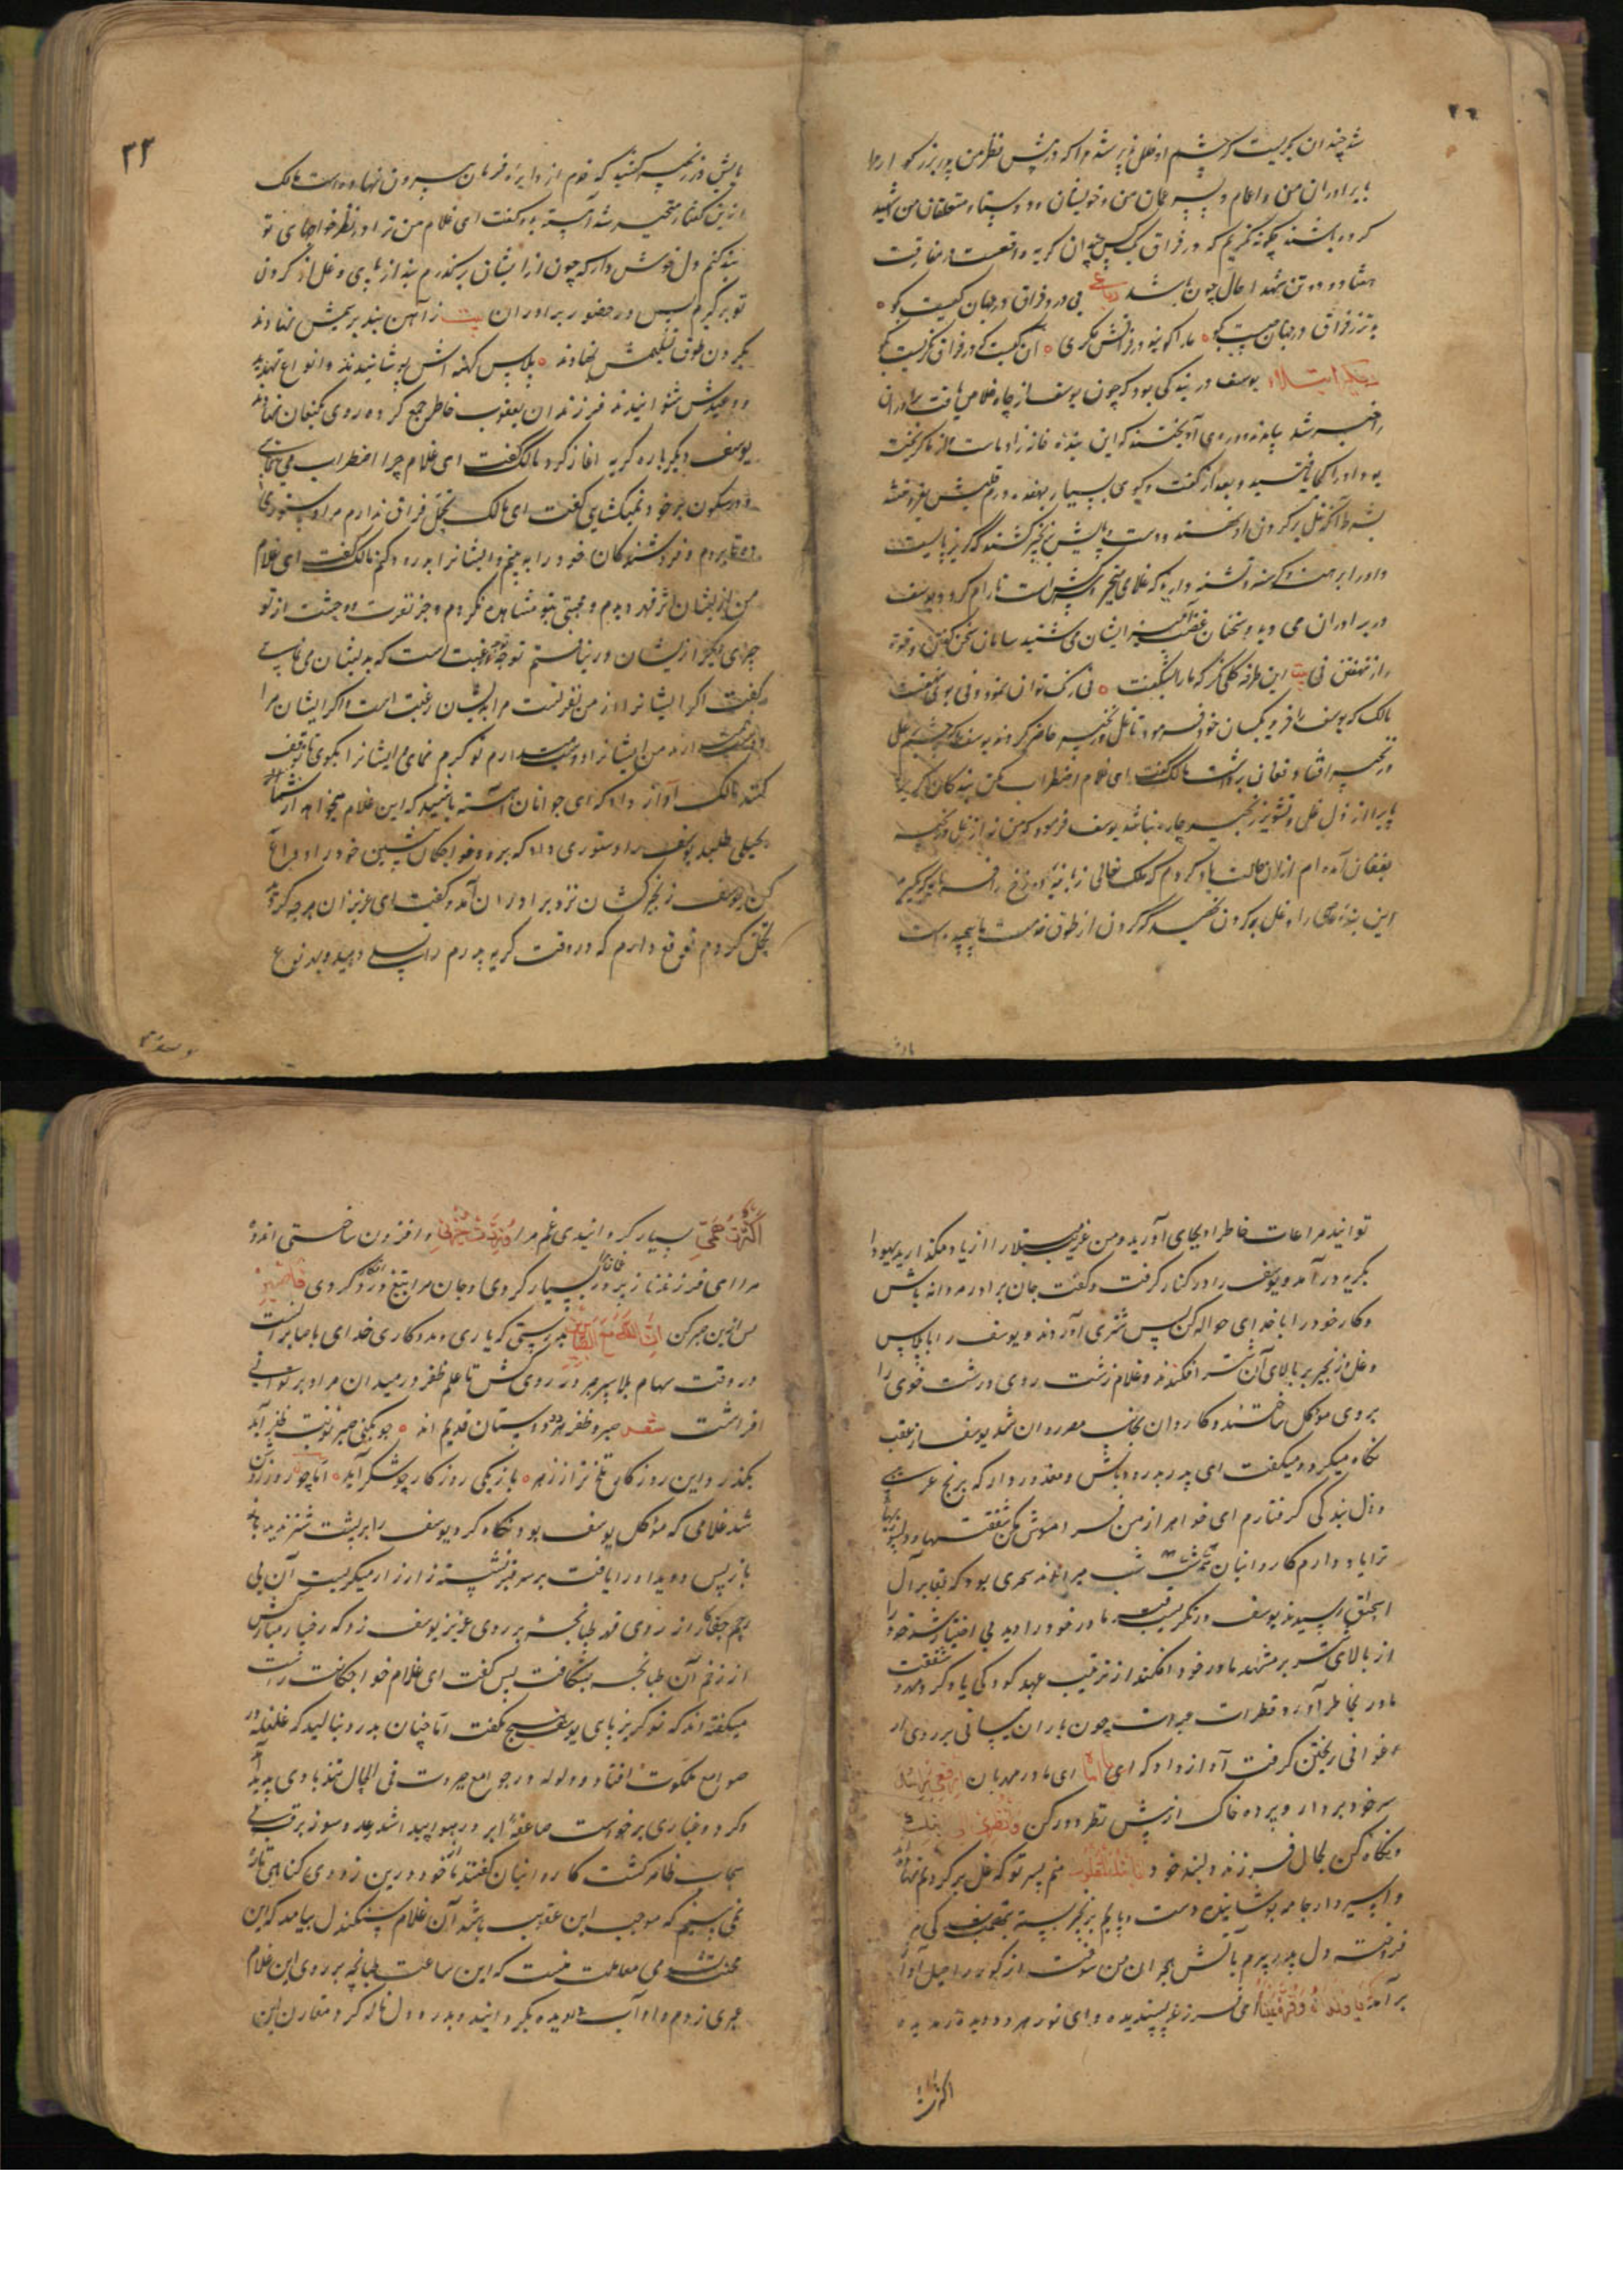 شد چندان بگریست که چشم او خلل پذیر شد مرا که در پیش نظر من پدر بزرگوار مرا
با برادران من و اعمام و پسر عمان من و خویشان و دوستان و متعلقان من شهید
کرده باشند چگونه نگریم که در فراق یک کس چندان گریه واقعست در مفارقت
هفتاد و دو تن شهدا حال چون باشد رباعی بی درد فراق در جهان کیست بگو
بدتر ز فراق در جهان چیست بگو ما را گویند در فراقش مگری آن کیست که در فراق نگریست بگو
دیگر ابتلاء یوسف در بندگی بود که چون یوسف از چاه خلاص یافت برادران
را خبر شد بیامدند و در وی آویختند که این بنده خانه زاد ماست و از ما گریخته
بود او را کجا یافتید و بعد از گفت و گوی بسیار بهفده درم قلبش بفروختند
بشرط آنکه غل بر گردن او نهند و دست و پایش بزنجیر کشند که گریز پایست
و او را برهنه و گرسنه و تشنه دارید که غلامی متحیر و سرکش است تا رام گردد یوسف
در برادران می دید و سخنان غضب آمیز ایشان می شنید سامان سخن گفتن و قوت
راز نهفتن نی بیت این طرفه گلی نگر که ما را بشکفت نی رنگ توان نمود و نی بوی نهفت
مالک که یوسف را خرید بکسان خود فرمود تا غل و زنجیر حاضر کردند یوسف را که چشم بر غل
و زنجیر افتاد فغان برداشت مالک گفت ای غلام اضطراب مکن بندگان گریز
پای را از ذل غل و تشویر زنجیر چاره نباشد یوسف فرمود که من نه از غل و زنجیر
بفغان آمده ام از آن حالت یاد کردم که ملک تعالی زبانیه دوزخ را فرماید که بگیرید
این بنده عاصی را و غل بر گردن نهید که گردن از طوق خدمت ما پیچیده است
پایش
۳۳
پایش در زنجیر کشید که قدم از دایره فرمان بیرون نهاده است مالک
ازین گفتار متحیر شد آهسته بدو گفت ای غلام من ترا در نظر خواجهای تو
بند کنم دل خوش دار که چون از ایشان برگذرم بند از پای و غل از گردن
تو برگیرم پس در حضور برادران بیت ز آهن بند بر پیش نهادند
بگردن طوق تسلیمش نهادند پلاس کهنه اش پوشانیدند و انواع تهدید
و وعیدش شنوانیدند فرزندان یعقوب خاطر جمع کرده روی بکنعان نهادند
یوسف دیگر باره گریه آغاز کرد مالک گفت ای غلام چرا اضطراب می نمائی
و در سکون بر خود نمیکشایی گفت ای مالک تحمل فراق ندارم مرا دستوری
ده تا بروم و فروشندگان خود را ببینم و ایشانرا بدرود کنم مالک گفت ای غلام
من از ایشان اثر قهر دیدم و محبتی بتو مشاهده نکردم و جز نفرت و وحشت از تو
چیزی دیگر از ایشان در نیافتم توجه رغبت است که بدیشان می نمایی
گفت اگر ایشانرا از من نفرتست مرا بدیشان رغبت است و اگر ایشان مرا
دشمن دارند من ایشانرا دوست میدارم تو کرم نمای و ایشانرا بگوی تا توقف
کنند مالک آواز داد که ای جوانان آهسته باشید که این غلام میخواهد از شما
بحلی طلبد یوسف را دستوری داد که برو و خواجگان پیشین خود را وداع
کن یوسف زنجیر کشان نزد برادران آمد و گفت ای عزیزان هر چه کردید
تحمل کردم توقع دارم که در وقت گریه پدرم را تسلی دهید و بهر نوع
که توانید
توانید مراعات خاطر او بجای آورید و من غریب مبتلا را از یاد مگذارید یهودا
بگریه در آمد و یوسف را در کنار گرفت و گفت جان برادر مردانه باش
و کار خود را با خدای حواله کن پس شتری آوردند و یوسف را با پلاس
و غل و زنجیر بر بالای آن شتر افکندند و غلام زشت روی درشت خوی را
بر وی موکل ساختند و کاروان بجانب مصر روان شد یوسف از عقب
نگاه میکرد و میگفت ای پدر بدرود باش و معذور دار که برنج غریبی
و ذل بندگی گرفتارم ای خواهر از من فراموش مکن شفقتها و دلجوئیهای
ترا یاد دارم کاروانیان همه شب میراندند سحری بود که بمقابر آل
اسحق رسیدند یوسف در نگریست قبر مادر خود را دید بی اختیار شد خود را
از بالای شتر بر مشهد مادر خود افکند از تربیت عهد کودکی یاد کرد و مهر و شفقت
مادر بخاطر آورد قطرات عبرات چون باران نیسانی بر روی ار
غوانی ریختن گرفت آواز داد که ای یا اماه ای مادر مهربان ارفعی راسک
سر خود بردار و پرده خاک از پیش نظر دور کن وانظری الی ابنک
و نگاه کن بجمال فرزند دلبند خود منم پسر تو که غل بر گردنم نهاده اند
و اسیروار جامه پوشانیده دست و پایم بزنجیر بسته
فروخته دل پدر پیرم بآتش هجران من سوخته از گور راحیل آواز
بر آمد یا ولداه و قرة عیناه ای فرزند پسندیده و ای نور هر دو دیده ندیده
اکثرت
اکثرت همی بسیار گردانیدی غم مرا و زدت حزنی و افزون ساختی اندوه
مرا ای فرزند نازپرورد بسیار کردی و جان مرا بتیغ درد افکار کردی فاصبر
پس ازین صبر کن ان الله مع الصابرین بدرستی که یاری و مددکاری خدای با صابرانست
در وقت سهام بلا سپر صبر در روی کش تا علم ظفر در میدان مراد بر توانی
افراشت شعر صبر و ظفر هر دو دوستان قدیم اند چو بکنی صبر نوبت ظفر آید
بگذرد این روزگار تلخ تر از زهر بار دگر روزگار چون شکر آید اما چون روز روشن
شد غلامی که موکل یوسف بود نگاه کرد یوسف را بر پشت شتر ندید باز
باز پس دوید او را یافت بر سر قبر نشسته زار زار میگریست آن بی
رحم جفاکار از روی قهر طپانچه بر روی عزیز یوسف زد که رخسار مبارکش
از زخم آن طپانچه بشکافت پس گفت ای غلام خواجگانت راست
میگفته اند که تو گریزپای یوسف هیچ نگفت اما چنان بدرد نبالید که غلغله در
صوامع ملکوت افتاد و ولوله در جوامع جبروت فی الحال تندبادی پدید آمد
و گرد و غباری برخواست صاعقه ابر در هوا پیدا شد رعد و سوز برق از
سحاب ظاهر گشت کاروانیان گفتند ما خود درین زودی گناهی تازه
نمی یابیم که موجب این عقوبت باشد آن غلام سنگدل بیامد که این
محنت شومی معاملت منست که این ساعت طپانچه بر روی این غلام
عبری زدم و او آب در دیده بگردانید و بدرد دل ناله کرد مقارن این